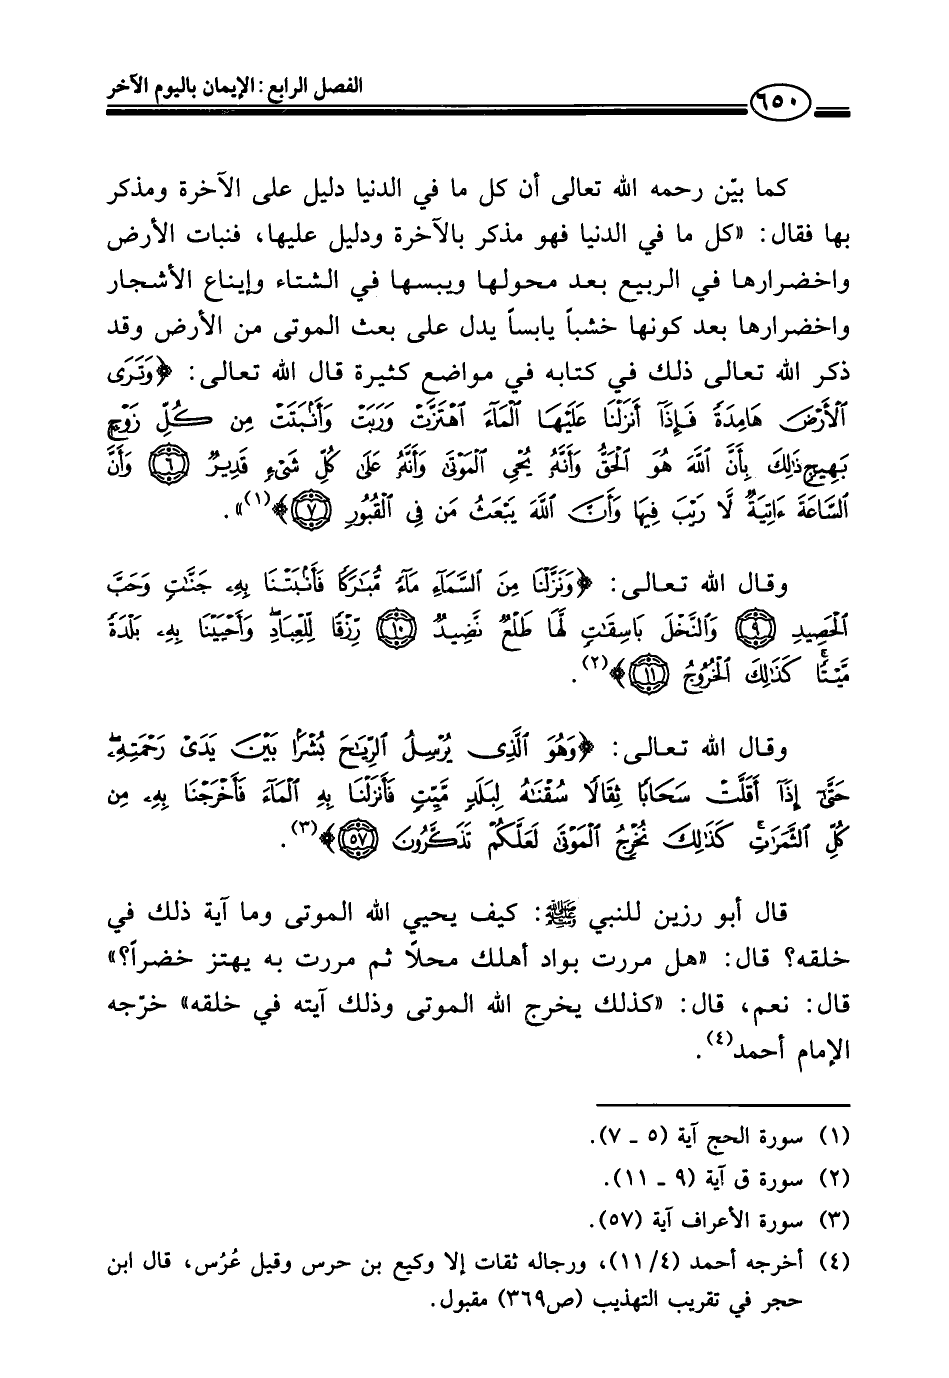 الفصل الرابع : الإيمان باليوم الآخر
٦٥٠
كما بيّن رحمه الله تعالى أن كل ما في الدنيا دليل على الآخرة ومذكر
بها فقال: «كل ما في الدنيا فهو مذكر بالآخرة ودليل عليها، فنبات الأرض
واخضرارها في الربيع بعد محولها ويبسها في الشتاء وإيناع الأشجار
واخضرارها بعد كونها خشباً يابساً يدل على بعث الموتى من الأرض وقد
ذكر الله تعالى ذلك في كتابه في مواضع كثيرة قال الله تعالى: ﴿وَتَرَى
ٱلْأَرْضَ هَامِدَةً فَإِذَآ أَنزَلْنَا عَلَيْهَا ٱلْمَآءَ ٱهْتَزَّتْ وَرَبَتْ وَأَنۢبَتَتْ مِن كُلِّ زَوْجٍۭ
بَهِيجٍ ذَٰلِكَ بِأَنَّ ٱللَّهَ هُوَ ٱلْحَقُّ وَأَنَّهُۥ يُحْىِ ٱلْمَوْتَىٰ وَأَنَّهُۥ عَلَىٰ كُلِّ شَىْءٍ قَدِيرٌ ۝٦ وَأَنَّ
ٱلسَّاعَةَ ءَاتِيَةٌ لَّا رَيْبَ فِيهَا وَأَنَّ ٱللَّهَ يَبْعَثُ مَن فِى ٱلْقُبُورِ ۝٧﴾(١)».
وقال الله تعالى: ﴿وَنَزَّلْنَا مِنَ ٱلسَّمَآءِ مَآءً مُّبَٰرَكًا فَأَنۢبَتْنَا بِهِۦ جَنَّٰتٍ وَحَبَّ
ٱلْحَصِيدِ ۝٩ وَٱلنَّخْلَ بَاسِقَٰتٍ لَّهَا طَلْعٌ نَّضِيدٌ ۝١٠ رِّزْقًا لِّلْعِبَادِ ۖ وَأَحْيَيْنَا بِهِۦ بَلْدَةً
مَّيْتًا ۚ كَذَٰلِكَ ٱلْخُرُوجُ ۝١١﴾(٢).
وقال الله تعالى: ﴿وَهُوَ ٱلَّذِى يُرْسِلُ ٱلرِّيَٰحَ بُشْرًۢا بَيْنَ يَدَىْ رَحْمَتِهِۦ ۖ
حَتَّىٰٓ إِذَآ أَقَلَّتْ سَحَابًا ثِقَالًا سُقْنَٰهُ لِبَلَدٍ مَّيِّتٍ فَأَنزَلْنَا بِهِ ٱلْمَآءَ فَأَخْرَجْنَا بِهِۦ مِن
كُلِّ ٱلثَّمَرَٰتِ ۚ كَذَٰلِكَ نُخْرِجُ ٱلْمَوْتَىٰ لَعَلَّكُمْ تَذَكَّرُونَ ۝٥٧﴾(٣).
قال أبو رزين للنبي ﷺ: كيف يحيي الله الموتى وما آية ذلك في
خلقه؟ قال: «هل مررت بواد أهلك محلاً ثم مررت به يهتز خضراً؟»
قال: نعم، قال: «كذلك يخرج الله الموتى وذلك آيته في خلقه» خرّجه
الإمام أحمد(٤).
(١) سورة الحج آية (٥ ـ ٧).
(٢) سورة ق آية (٩ ـ ١١).
(٣) سورة الأعراف آية (٥٧).
(٤) أخرجه أحمد (١١/٤)، ورجاله ثقات إلا وكيع بن حرس وقيل عُرُس، قال ابن
حجر في تقريب التهذيب (ص٣٦٩) مقبول.